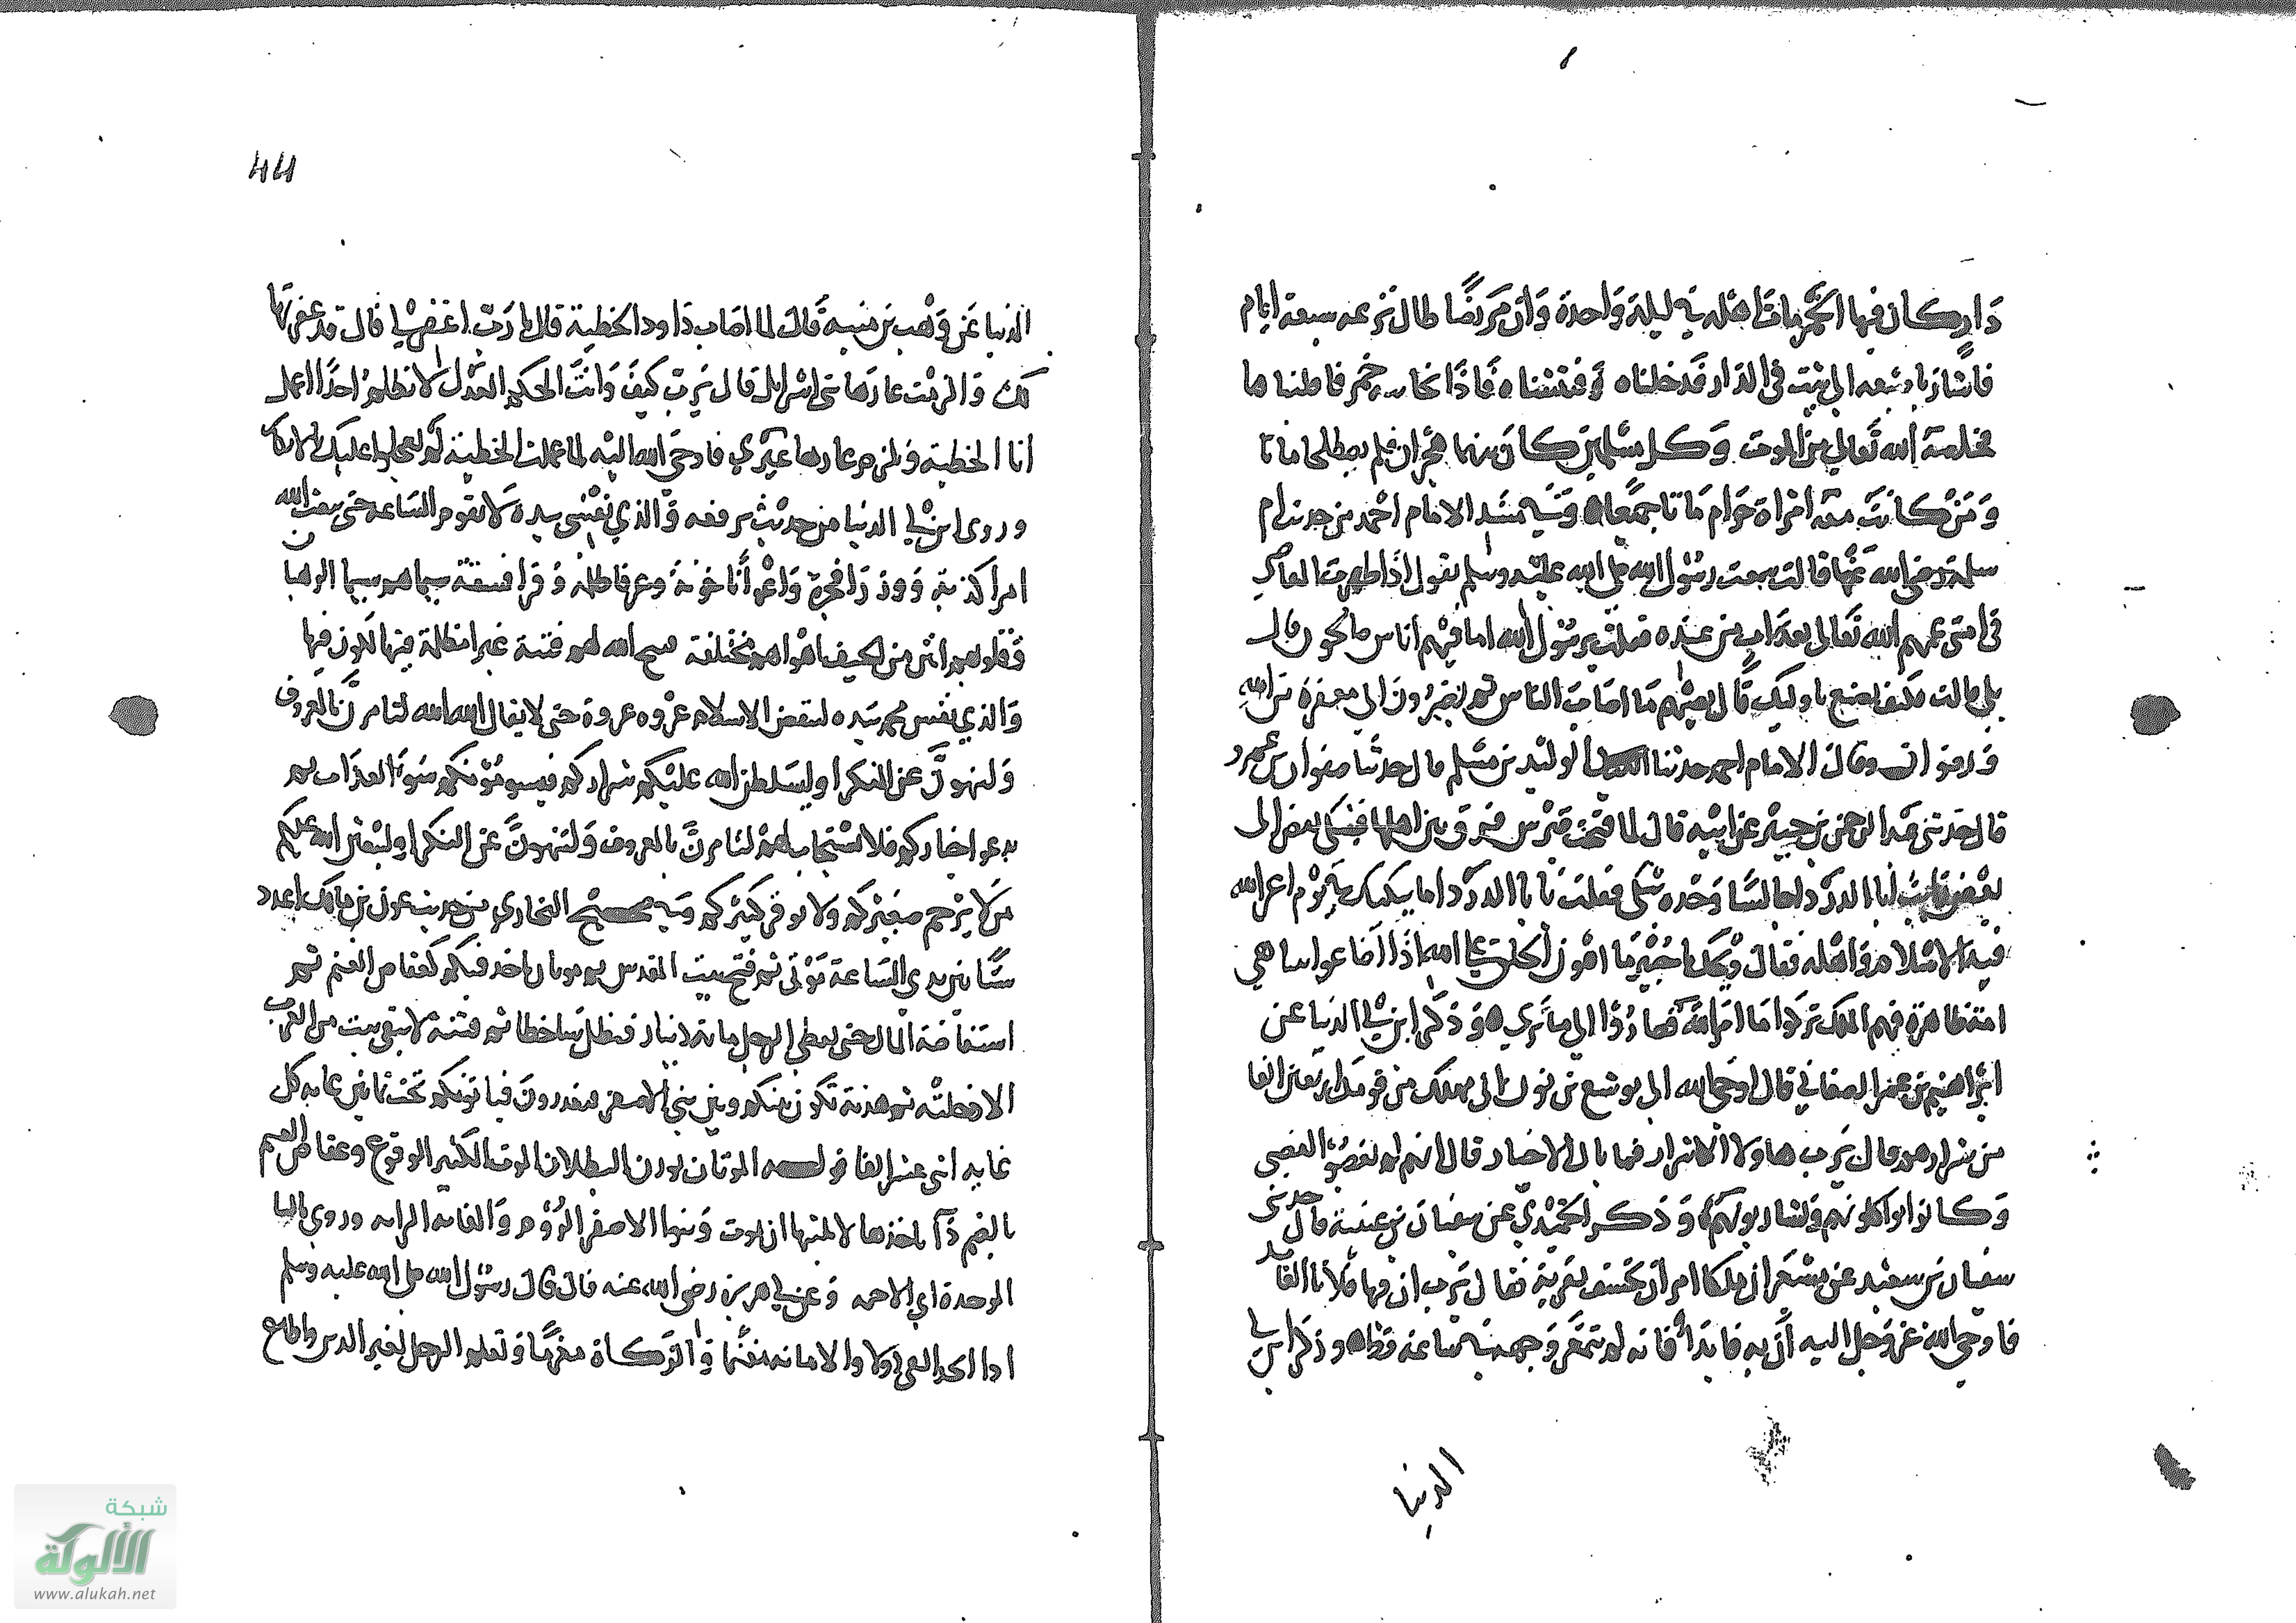 دار كان فيها الخمر مات اهله في ليلة واحدة وان مريضا طال نزعه سبعة ايام
فاشار باصبعه الى بيت في الدار فدخلناه وفتشناه فاذا خابية خمر فاطنباها
فخلصه الله تعالى من الموت وكل مسلمين كان بينهما هجران فلم يصطلحا ماتا
ومن كانت معه امراة حرام ماتا جميعا وفي مسند الامام احمد من حديث ام
سلمة رضي الله عنها قالت سمعت رسول الله صلى الله عليه وسلم يقول اذا ظهرت المعاصي
في امتي عمهم الله تعالى بعذاب من عنده فقلت يرسول الله اما فيهم اناس صالحون قال
بلى قالت فكيف يصنع باوليك قال يصيبهم ما اصاب الناس ثم يصيرون الى مغفرة من الله
ورضوان وقال الامام احمد حدثنا الوليد بن مسلم قال حدثنا صفوان بن عمرو
قال حدثني عبد الرحمن بن جبير عن ابيه قال لما فتحت قبرس فرق بين اهلها فبكى بعضها الى
بعض فرايت ابا الدردا جالسا وحده يبكي فقلت يا ابا الدردا ما يبكيك في يوم اعز الله
فيه الاسلام واهله فقال ويحك يا جبير ما اهون الخلق على الله اذا اضاعوا امره بينا هي
امة ظاهرة لهم الملك تركوا امر الله فصاروا الى ما ترى وذكر ابن ابي الدنيا عن
ابراهيم بن عمر الصنعاني قال اوحى الله الى يوشع بن نون اني مهلك من قومك اربعين الفا
من شرارهم قال يرب هاولا الاشرار فما بال الاخيار قال انهم لم يغضبوا لغضبي
وكانوا يواكلونهم ويشاربونهم وذكر الحميدي عن سفيان بن عيينة قال حدثني
سفيان بن سعيد عن مسعر ان ملكا امر ان يخسف بقرية فقال يرب ان فيها فلانا العابد
فاوحى الله عز وجل اليه ان به فابدا فانه لم يتمعر وجهه في ساعة قط وذكر ابن ابي
الدنيا
44
الدنيا عن وهب بن منبه قال لما اصاب داود الخطية قال يا رب اغفر لي قال قد غفرتها
لك والزمت عارها بني اسرايل قال يرب كيف وانت الحكم العدل لا تظلم احدا اعمل
انا الخطية ويلزم عارها غيري فاوحى الله اليه لما عملت الخطية لم يعجلوا عليك بالانكار
وروى ابن ابي الدنيا من حديث يرفعه والذي نفسي بيده لا تقوم الساعة حتى يبعث الله
امرا كذبة ووزرا فجرة واعوانا خونة وعرفا ظلمة وقرا فسقة سيماهم سيما الرهبان
وقلوبهم انتن من الجيف اهواهم مختلفة فيتيح الله لهم فتنة غبرا مظلمة فيتهاوكون فيها
والذي نفس محمد بيده لينقضن الاسلام عروة عروة حتى لا يقال الله الله لتامرن بالمعروف
ولتنهون عن المنكر او ليسلطن الله عليكم شراركم فيسومونكم سو العذاب ثم
يدعو اخياركم فلا يستجاب لهم لتامرن بالمعروف ولتنهون عن المنكر او ليبعثن الله عليكم
من لا يرحم صغيركم ولا يوقر كبيركم وفي صحيح البخاري من حديث عوف بن مالك اعدد
ستا بين يدي الساعة موتي ثم فتح بيت المقدس ثم موتان ياخذ فيكم كعقاص الغنم ثم
استفاضة المال حتى يعطى الرجل ماية دينار فيظل ساخطا ثم فتنة لا يبقى بيت من العرب
الا دخلته ثم هدنة تكون بينكم وبين بني الاصفر فيغدرون فياتونكم تحت ثمانين غاية كل
غاية اثنى عشر الفا قوله الموتان بوزن البطلان الموت الكثير الوقوع وعقاص الغنم
بالضم دآ ياخذها لا يلبثها ان تموت وبنوا الاصفر الروم والغاية الراية وروي بالبا
الموحدة اي الاجمة وعن ابي هريرة رضي الله عنه قال قال رسول الله صلى الله عليه وسلم
اذا اتخذ الفي دولا والامانة مغنما والزكاة مغرما وتعلم الرجل لغير الدين واطاع
شبكة
الألوكة
www.alukah.net